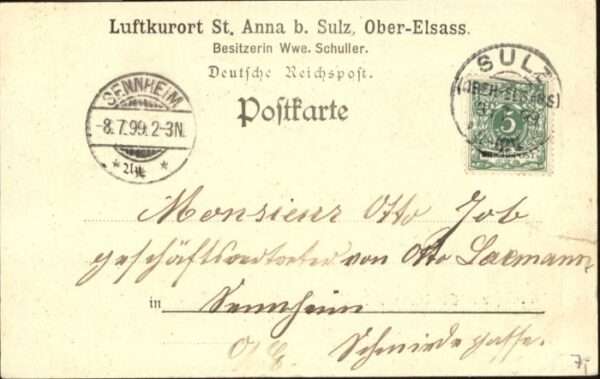 Luftkurort St. Anna b. Sulz, Ober-Elsass.
Besitzerin Wwe. Schuller.
Deutsche Reichspost.
Postkarte
SENNHEIM
-8.7.99.2-3N.
SULZ
(OBER-ELSASS)
5
Monsieur Otto Job
geschäftsvertreter von Otto
in Sennheim
Schmiedegasse.
7,-